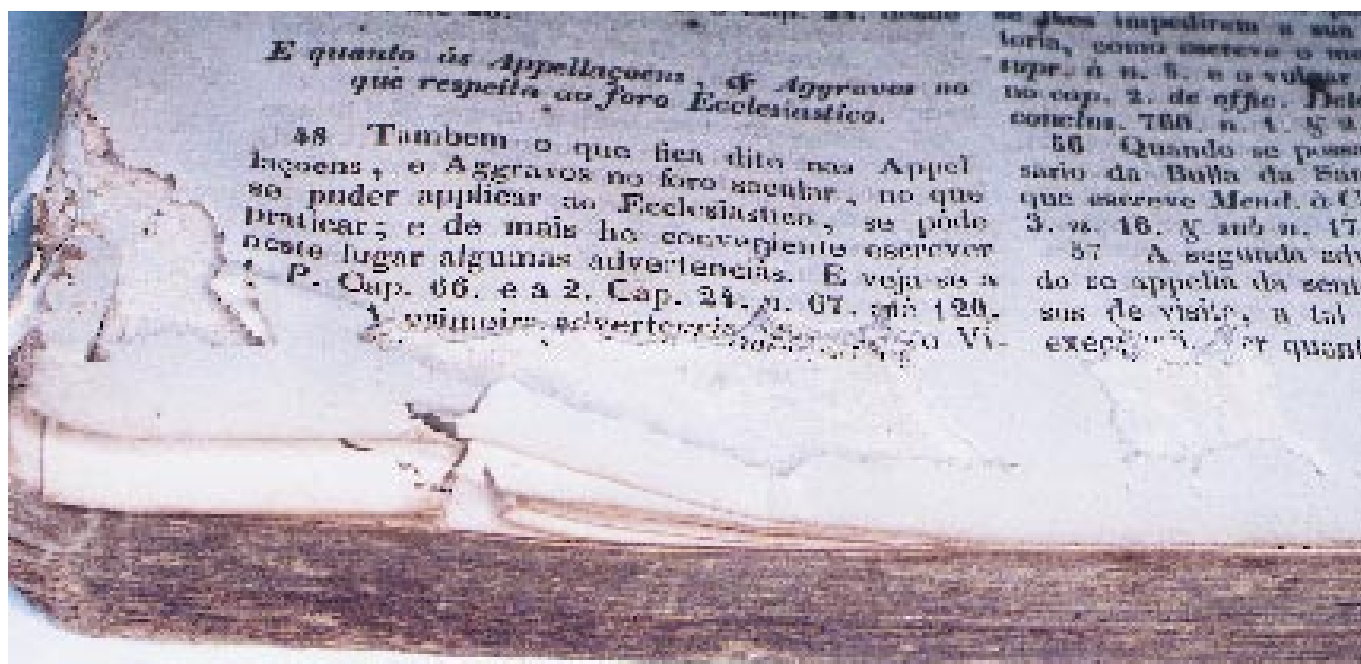 E quanto ás Appellaçoens, & Aggravos no
que respeita ao foro Ecclesiastico.
48 Tambem o que fica dito nas Appel
laçoens, e Aggravos no foro secular, no que
se puder applicar ao Ecclesiastico, se póde
praticar; e de mais he conveniente escrever
neste lugar algumas advertencias. E veja-se a
P. Cap. 66. e a 2. Cap. 24. n. 67. até 120.
advertencia Vi-
se lhes impedirem a sua
toria, como escreve o
supr. à n. 5. e o vulgar
no cap. 2. de offic.
conclus. 760. n. 4. & 2.
56 Quando se
sario da Bulla da
que escreve Mend. à C
3. n. 16. & sub n. 17.
57 A segunda adv
do se appella da sent
sos de visita, a tal
quant